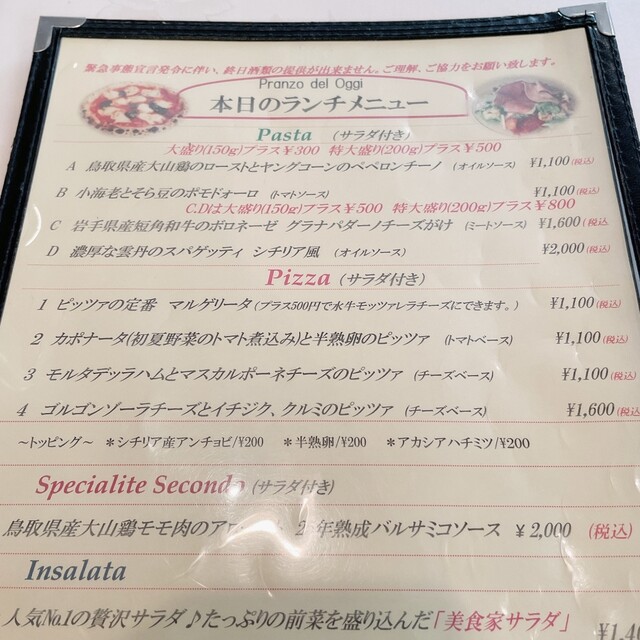 緊急事態宣言発令に伴い、終日酒類の提供が出来ません。ご理解、ご協力をお願い致します。
Pranzo del Oggi
本日のランチメニュー
Pasta (サラダ付き)
大盛り(150g)プラス￥300 特大盛り(200g)プラス￥500
A 鳥取県産大山鶏のローストとヤングコーンのペペロンチーノ (オイルソース) ¥1,100(税込)
B 小海老とそら豆のポモドォーロ (トマトソース) ¥1,100(税込)
C.Dは大盛り(150g)プラス￥500 特大盛り(200g)プラス￥800
C 岩手県産短角和牛のボロネーゼ グラナパダーノチーズがけ (ミートソース) ¥1,600(税込)
D 濃厚な雲丹のスパゲッティ シチリア風 (オイルソース) ¥2,000(税込)
Pizza (サラダ付き)
1 ピッツァの定番 マルゲリータ(プラス500円で水牛モッツァレラチーズにできます。) ¥1,100(税込)
2 カポナータ(初夏野菜のトマト煮込み)と半熟卵のピッツァ (トマトベース) ¥1,100(税込)
3 モルタデッラハムとマスカルポーネチーズのピッツァ (チーズベース) ¥1,100(税込)
4 ゴルゴンゾーラチーズとイチジク、クルミのピッツァ (チーズベース) ¥1,600(税込)
～トッピング～ ＊シチリア産アンチョビ/¥200 ＊半熟卵/¥200 ＊アカシアハチミツ/¥200
Specialite Secondo (サラダ付き)
鳥取県産大山鶏モモ肉の 年熟成バルサミコソース ¥2,000 (税込)
Insalata
人気No.1の贅沢サラダ♪たっぷりの前菜を盛り込んだ「美食家サラダ」